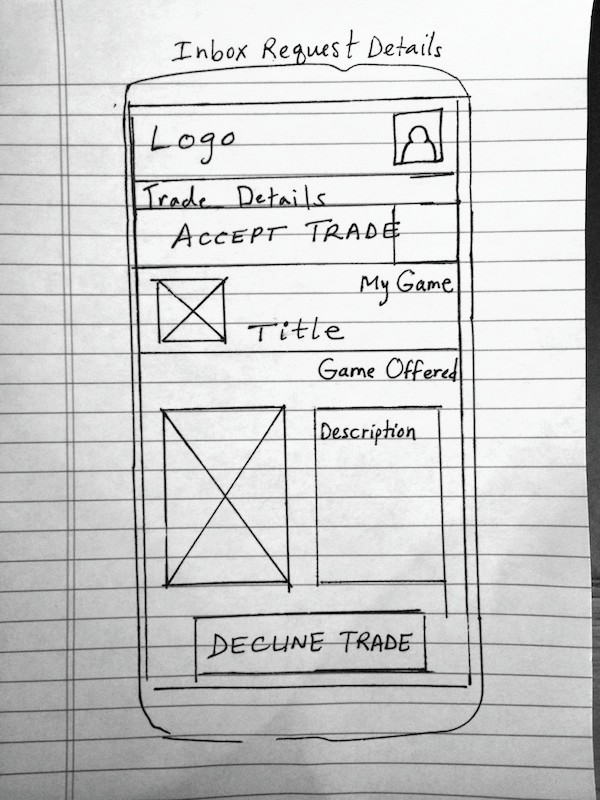 Inbox Request Details
Logo
Trade Details
ACCEPT TRADE
My Game
Title
Game Offered
Description
DECLINE TRADE